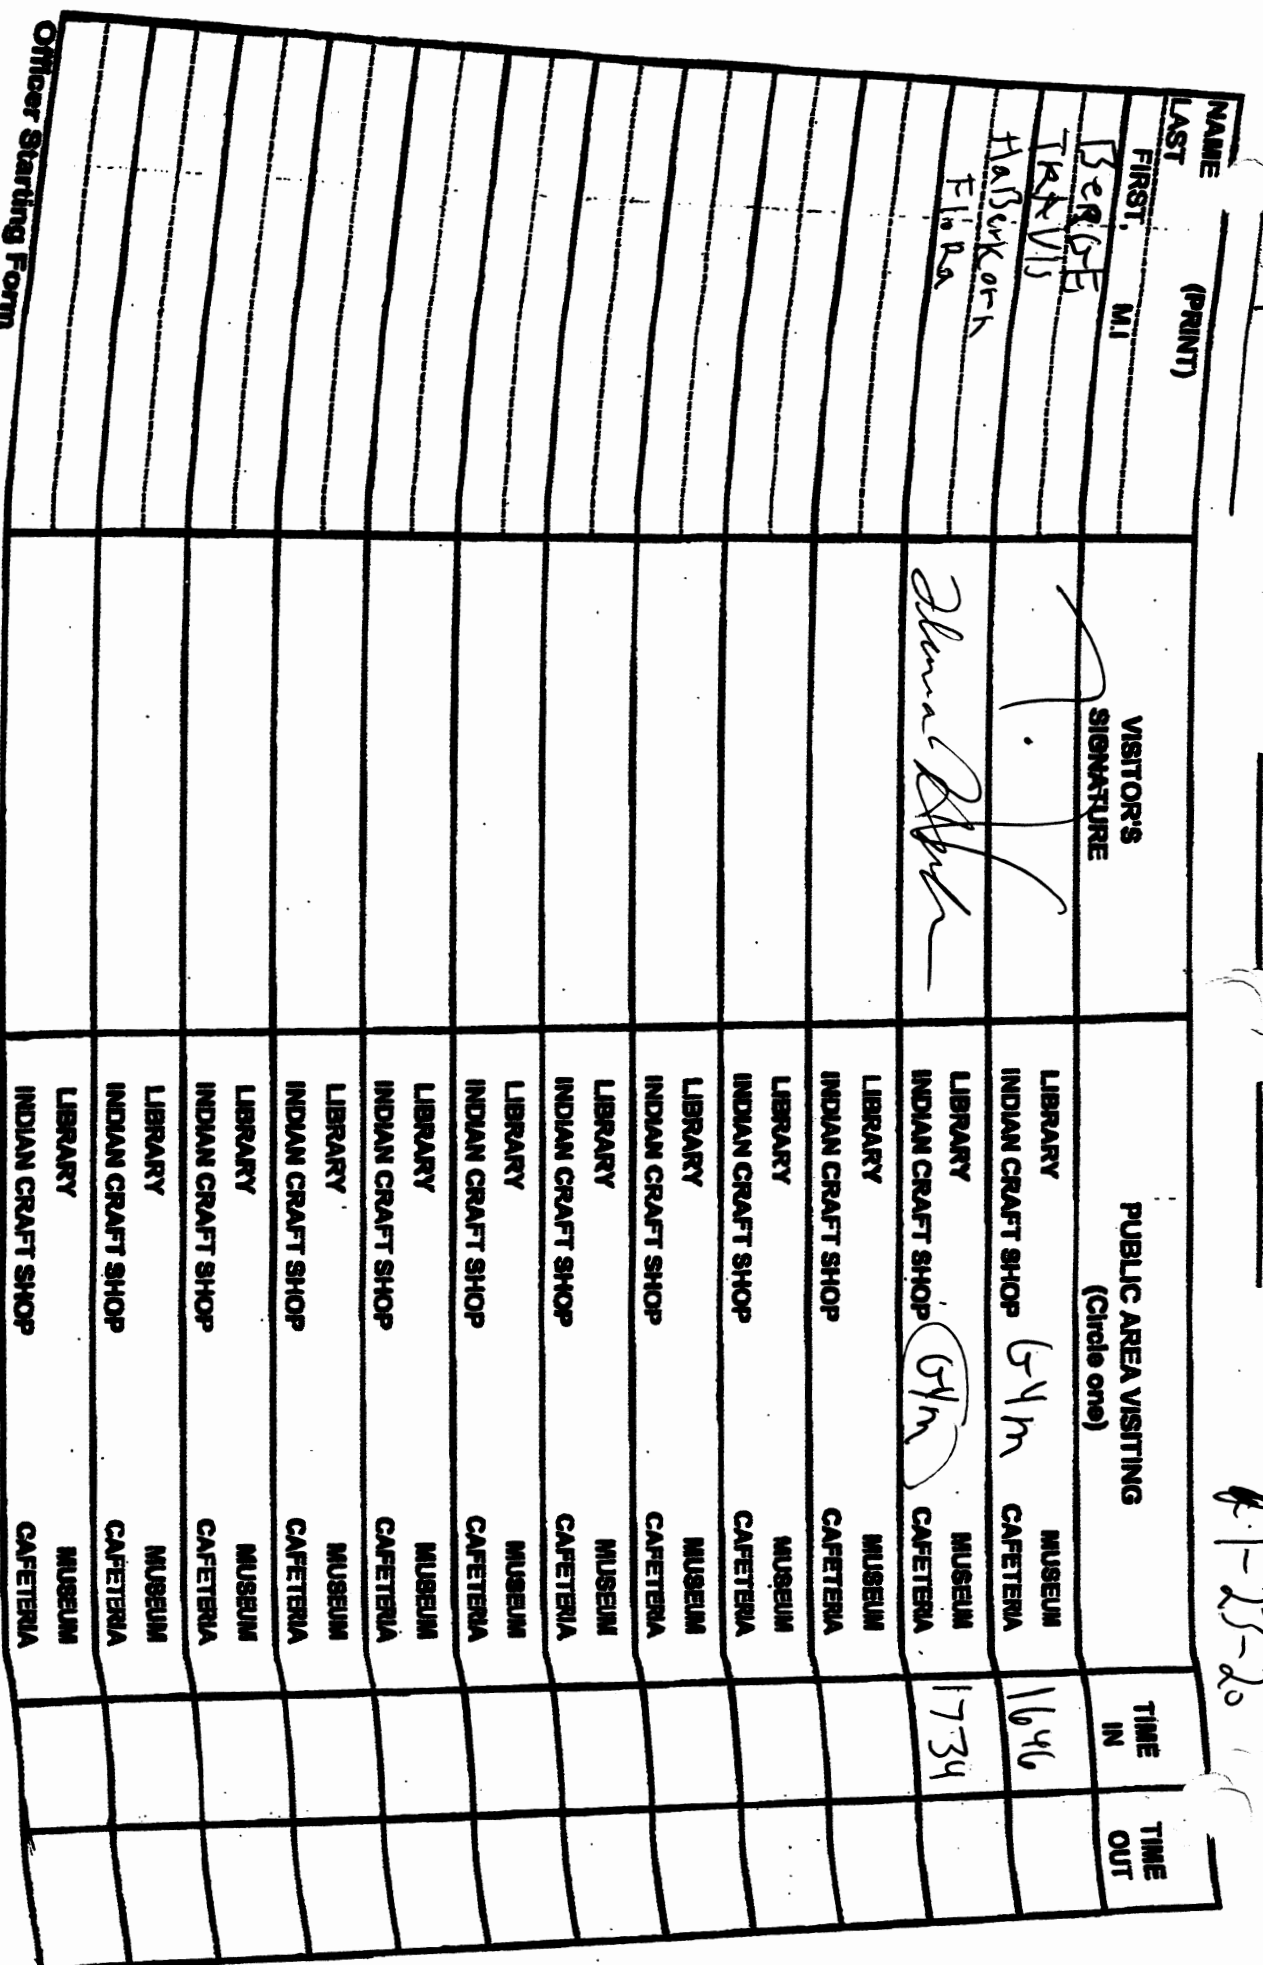 1-25-20
NAME (PRINT)
LAST FIRST, M.I
VISITOR'S SIGNATURE
PUBLIC AREA VISITING
(Circle one)
TIME IN
TIME OUT
BERGE
TRAVIS
LIBRARY MUSEUM
INDIAN CRAFT SHOP GYm CAFETERIA
1646
HaBirkorn
FloRa
LIBRARY MUSEUM
INDIAN CRAFT SHOP GYm CAFETERIA
1734
LIBRARY MUSEUM
INDIAN CRAFT SHOP CAFETERIA
LIBRARY MUSEUM
INDIAN CRAFT SHOP CAFETERIA
LIBRARY MUSEUM
INDIAN CRAFT SHOP CAFETERIA
LIBRARY MUSEUM
INDIAN CRAFT SHOP CAFETERIA
LIBRARY MUSEUM
INDIAN CRAFT SHOP CAFETERIA
LIBRARY MUSEUM
INDIAN CRAFT SHOP CAFETERIA
LIBRARY MUSEUM
INDIAN CRAFT SHOP CAFETERIA
LIBRARY MUSEUM
INDIAN CRAFT SHOP CAFETERIA
LIBRARY MUSEUM
INDIAN CRAFT SHOP CAFETERIA
LIBRARY MUSEUM
INDIAN CRAFT SHOP CAFETERIA
Officer Starting Form